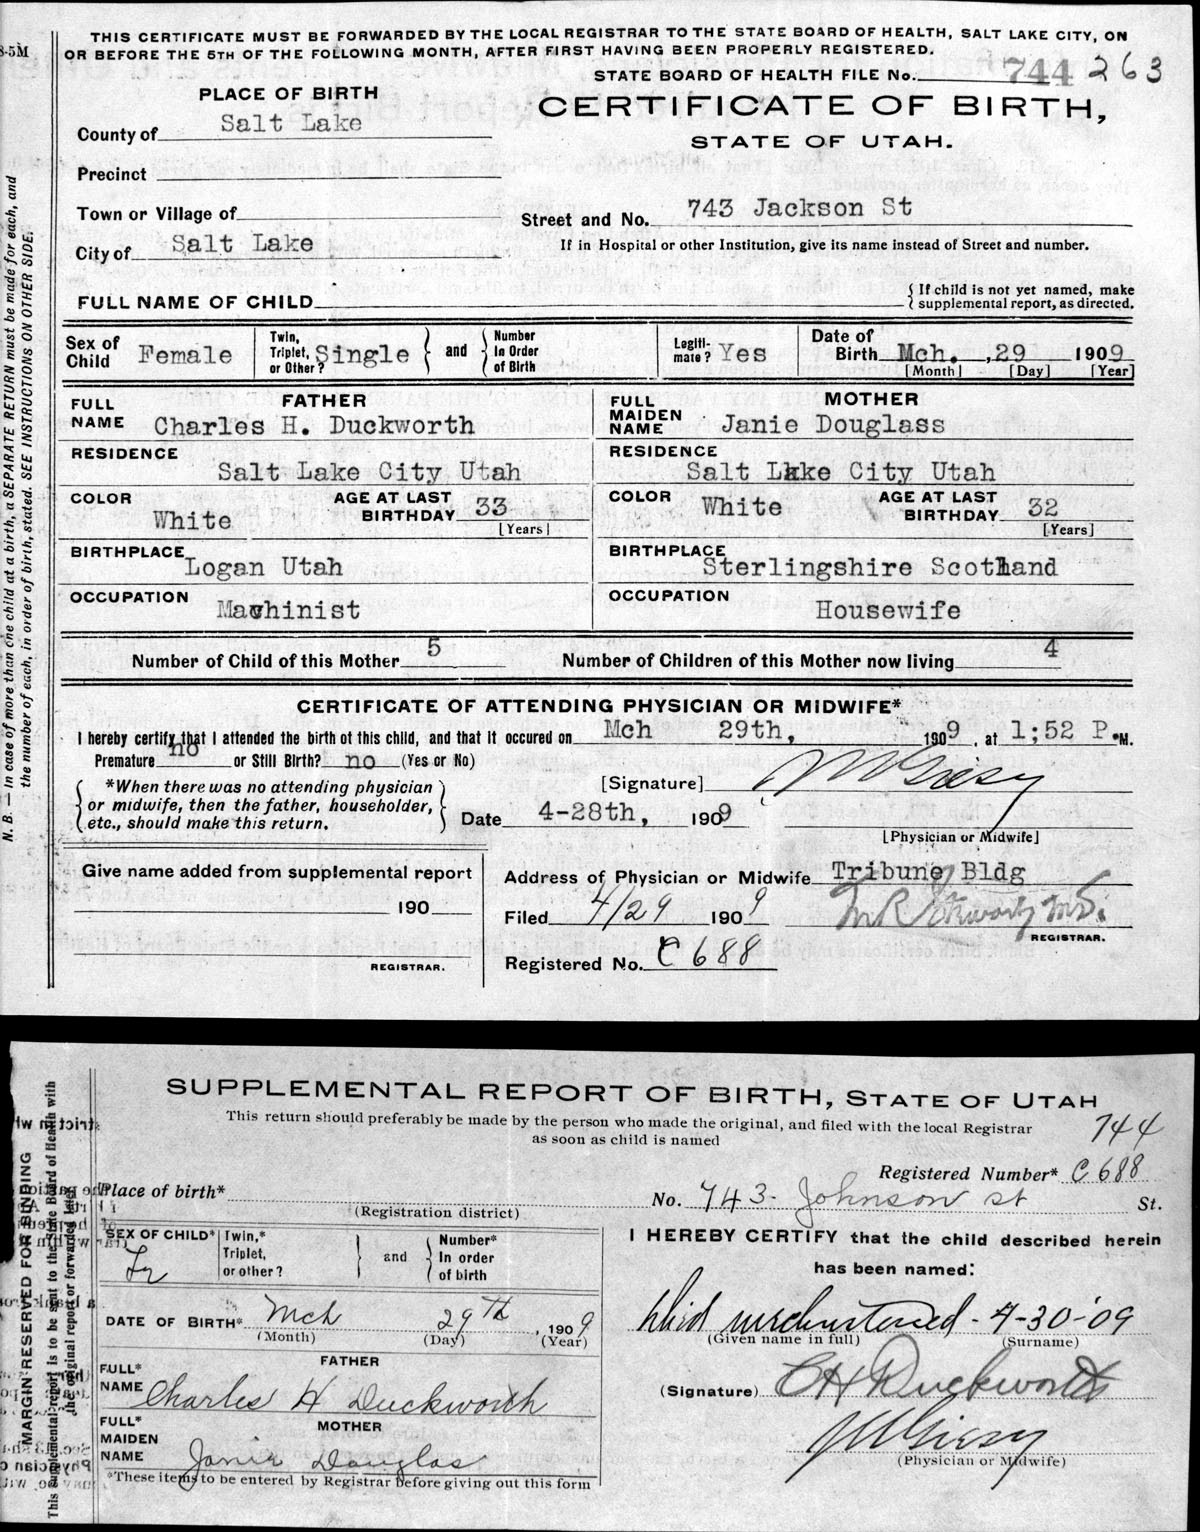 THIS CERTIFICATE MUST BE FORWARDED BY THE LOCAL REGISTRAR TO THE STATE BOARD OF HEALTH, SALT LAKE CITY, ON
OR BEFORE THE 5TH OF THE FOLLOWING MONTH, AFTER FIRST HAVING BEEN PROPERLY REGISTERED.
8-5M
STATE BOARD OF HEALTH FILE No. 744 263
PLACE OF BIRTH
CERTIFICATE OF BIRTH,
STATE OF UTAH.
County of Salt Lake
Precinct
Town or Village of
Street and No. 743 Jackson St
City of Salt Lake
If in Hospital or other Institution, give its name instead of Street and number.
FULL NAME OF CHILD
{ If child is not yet named, make
supplemental report, as directed.
N. B.—In case of more than one child at a birth, a SEPARATE RETURN must be made for each, and
the number of each, in order of birth, stated. SEE INSTRUCTIONS ON OTHER SIDE.
Sex of Child Female
Twin, Triplet, or Other? Single } and { Number In Order of Birth
Legiti-mate? Yes
Date of Birth Mch. ,29 1909
[Month] [Day] [Year]
FATHER
FULL NAME Charles H. Duckworth
MOTHER
FULL MAIDEN NAME Janie Douglass
RESIDENCE Salt Lake City Utah
RESIDENCE Salt Lake City Utah
COLOR White AGE AT LAST BIRTHDAY 33 [Years]
COLOR White AGE AT LAST BIRTHDAY 32 [Years]
BIRTHPLACE Logan Utah
BIRTHPLACE Sterlingshire Scotland
OCCUPATION Machinist
OCCUPATION Housewife
Number of Child of this Mother 5
Number of Children of this Mother now living 4
CERTIFICATE OF ATTENDING PHYSICIAN OR MIDWIFE*
I hereby certify that I attended the birth of this child, and that it occured on Mch 29th, 1909, at 1;52 P.M.
Premature no or Still Birth? no (Yes or No)
{ *When there was no attending physician
or midwife, then the father, householder,
etc., should make this return. }
[Signature]
Date 4-28th, 1909
[Physician or Midwife]
Give name added from supplemental report
190
REGISTRAR.
Address of Physician or Midwife Tribune Bldg
Filed 4/29 1909
REGISTRAR.
Registered No. C 688
SUPPLEMENTAL REPORT OF BIRTH, STATE OF UTAH
This return should preferably be made by the person who made the original, and filed with the local Registrar
as soon as child is named
744
Registered Number* C 688
MARGIN RESERVED FOR BINDING
This supplemental report is to be sent to the State Board of Health with
the original report or forwarded later
Place of birth*
(Registration district)
No. 743- Johnson st St.
SEX OF CHILD*
Twin,* Triplet, or other? } and { Number* In order of birth
DATE OF BIRTH* Mch 29th, 1909
(Month) (Day) (Year)
FATHER
FULL* NAME Charles H Duckworth
MOTHER
FULL* MAIDEN NAME Janie Douglas
*These items to be entered by Registrar before giving out this form
I HEREBY CERTIFY that the child described herein
has been named:
4-30-'09
(Given name in full) (Surname)
(Signature) C H Duckworth
(Physician or Midwife)